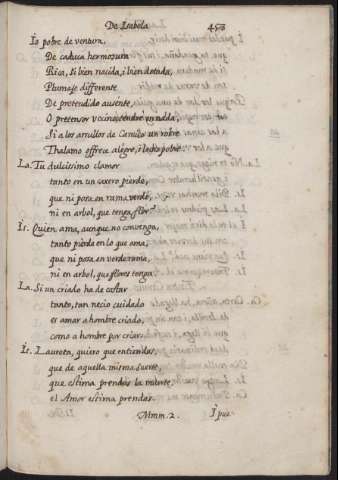 De Isabela 453
Io pobre de ventura,
De caduca hermosura
Rica, si bien nacida, i bien dotada,
Plumaje differente
De pretendido ausente,
O pretensor
Si a los arrullos de Camilo un roble
Thalamo offrece alegre, i lecho noble.
La. Tu dulcissimo clamor
tanto en un pierde,
que ni posa en rama verde,
ni en arbol, que tenga flor.
Is. Quien ama, aunque no convenga,
tanto pierda en lo que ama,
que ni posa en verde rama,
ni en arbol, que flores tenga.
La. Si un criado ha de costar
tanto, tan necio cuidado
es amar a hombre criado,
como a hombre por criar.
Is. Laureta, quiero que entiendas,
que de aquella misma suerte,
que estima prendas la muerte,
el Amor estima prendas.
Mmm. 2. I pues